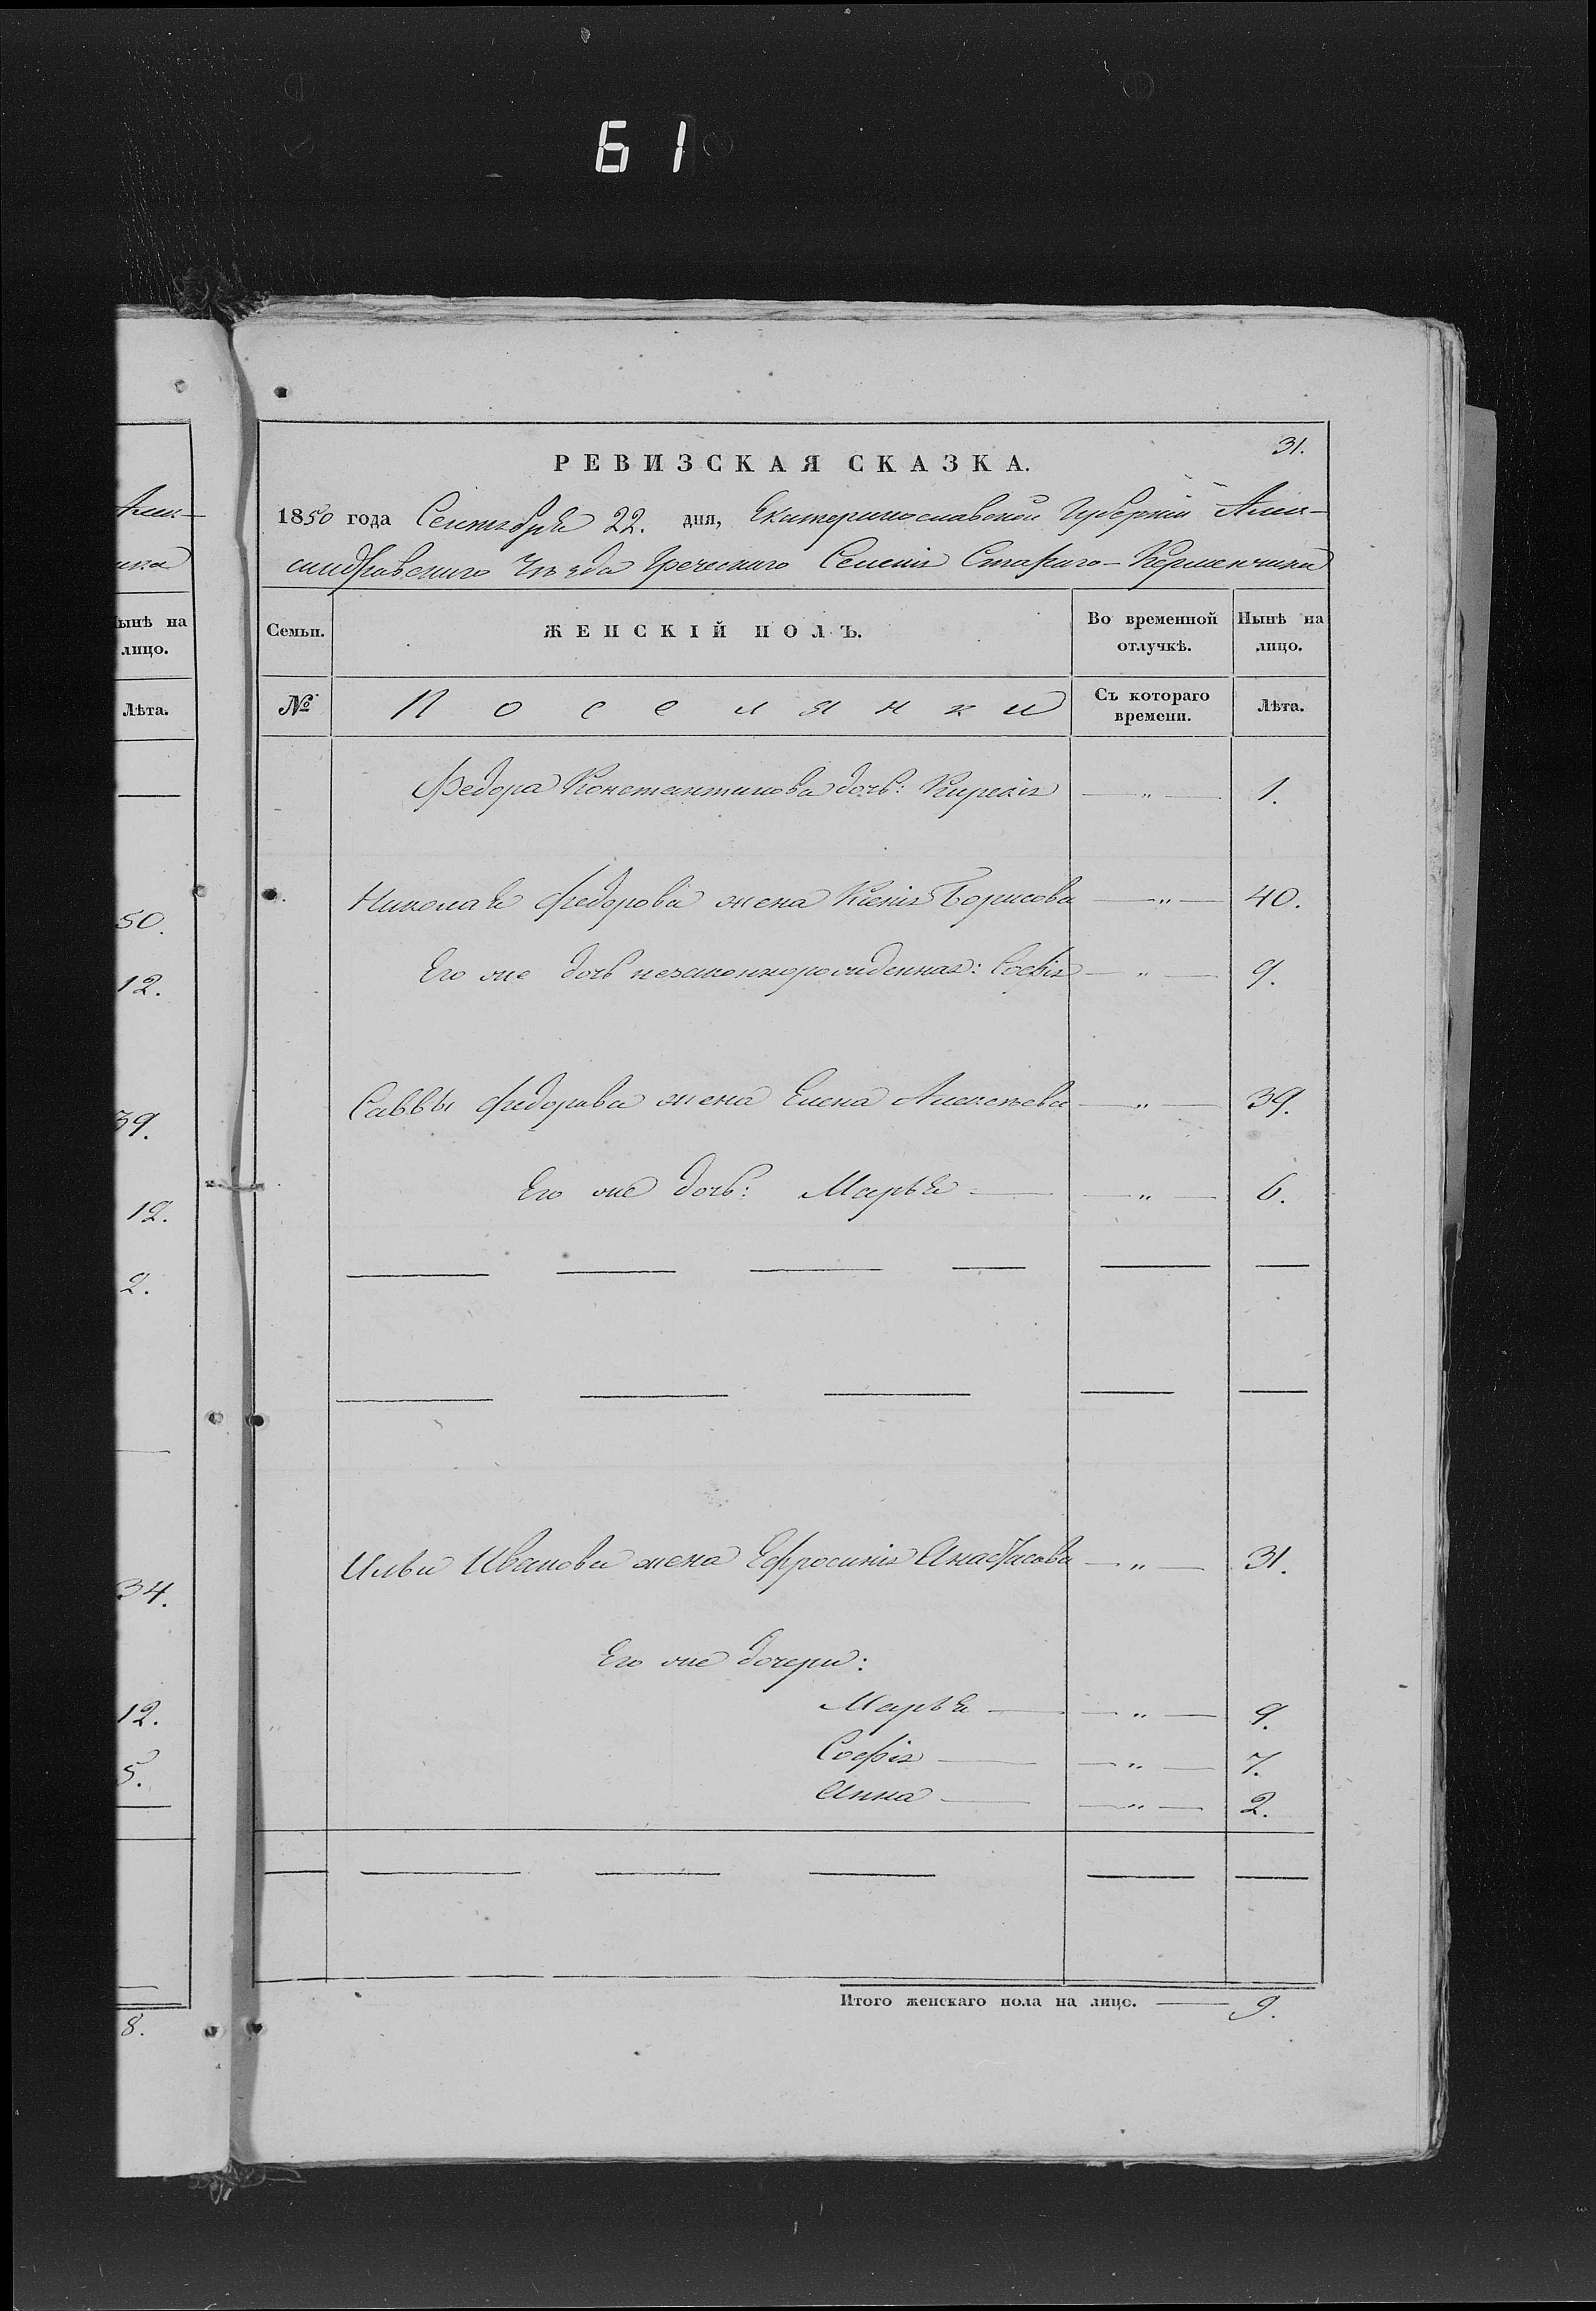 61
31.
РЕВИЗСКАЯ СКАЗКА.
1850 года Сентября 22. дня, Екатеринославской Губерніи Алек-
сандровскаго Уѣзда Греческаго Селенія Стараго-Керменчика
Семьи.
ЖЕНСКІЙ ПОЛЪ.
Во временной отлучкѣ.
Нынѣ на лицо.
№
Поселянки
Съ котораго времени.
Лѣта.
Федора Константинова дочь: Кирекія — " — 1.
Николая Федорова жена Ксенія Борисова — " — 40.
Его же дочь незаконнорожденная: Софія — " — 9.
Саввы Федорова жена Елена Алексѣева — " — 39.
Его же дочь: Марья — — " — 6.
Ильи Иванова жена Ефросинія Анастасова — " — 31.
Его же дочери:
Марья — — " — 9.
Софія — — " — 7.
Анна — — " — 2.
Итого женскаго пола на лицо. — 9.
Алек-
ика
Нынѣ на
лицо.
Лѣта.
50.
12.
39.
12.
2.
34.
12.
5.
8.